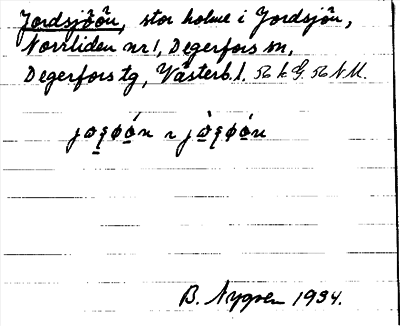 Jordsjöön, stor holme i Jordsjön,
Norrliden nr 1, Degerfors sn,
Degerfors tg, Västerb. l. 56 k G. 56 NM.
B. Nygren 1934.